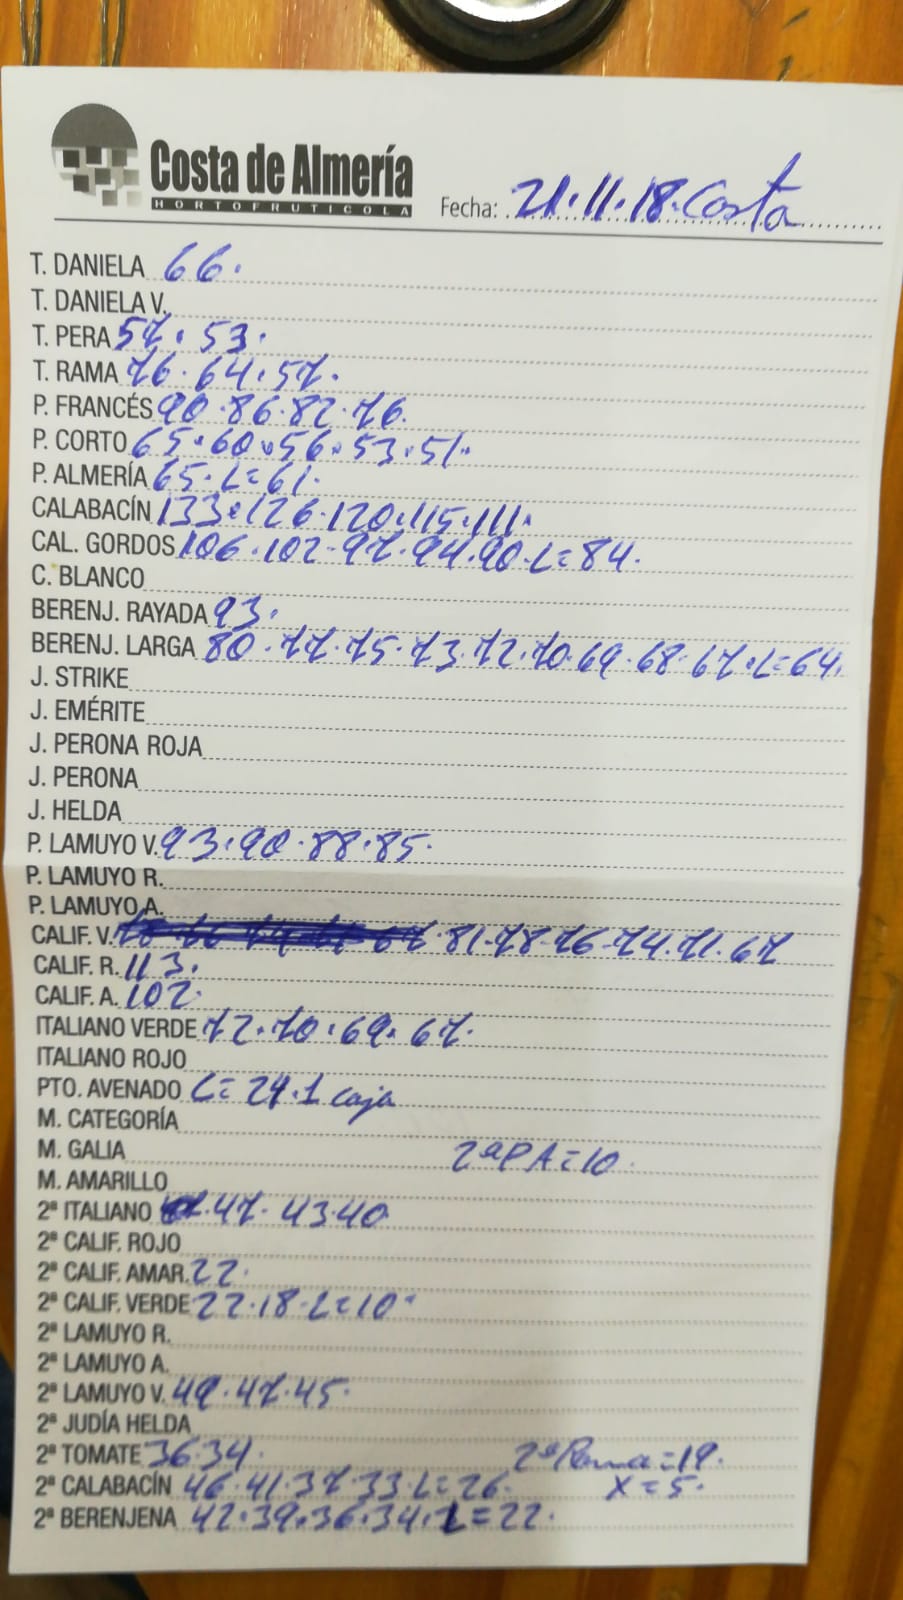 Costa de Almería
HORTOFRUTICOLA
Fecha: 21.11.18. Costa
T. DANIELA 66.
T. DANIELA V.
T. PERA 57. 53.
T. RAMA 76. 64. 57.
P. FRANCÉS 90. 86. 82. 76.
P. CORTO 65. 60. 56. 53. 51.
P. ALMERÍA 65. L=61.
CALABACÍN 133. 126. 120. 115. 111.
CAL. GORDOS 106. 102. 97. 94. 90. L=84.
C. BLANCO
BERENJ. RAYADA 93.
BERENJ. LARGA 80. 77. 75. 73. 72. 70. 69. 68. 67. L=64.
J. STRIKE
J. EMÉRITE
J. PERONA ROJA
J. PERONA
J. HELDA
P. LAMUYO V. 93. 90. 88. 85.
P. LAMUYO R.
P. LAMUYO A.
CALIF. V. 81. 78. 76. 74. 71. 67
CALIF. R. 113.
CALIF. A. 102.
ITALIANO VERDE 72. 70. 69. 67.
ITALIANO ROJO
PTO. AVENADO L=24. 1 caja
M. CATEGORÍA
M. GALIA 2ª PA=10.
M. AMARILLO
2ª ITALIANO 47. 43. 40
2ª CALIF. ROJO
2ª CALIF. AMAR. 22.
2ª CALIF. VERDE 22. 18. L=10.
2ª LAMUYO R.
2ª LAMUYO A.
2ª LAMUYO V. 49. 47. 45.
2ª JUDÍA HELDA
2ª TOMATE 36. 34. 2ª Rama=19.
2ª CALABACÍN 46. 41. 37. 33. L=26. X=5.
2ª BERENJENA 42. 39. 36. 34. L=22.